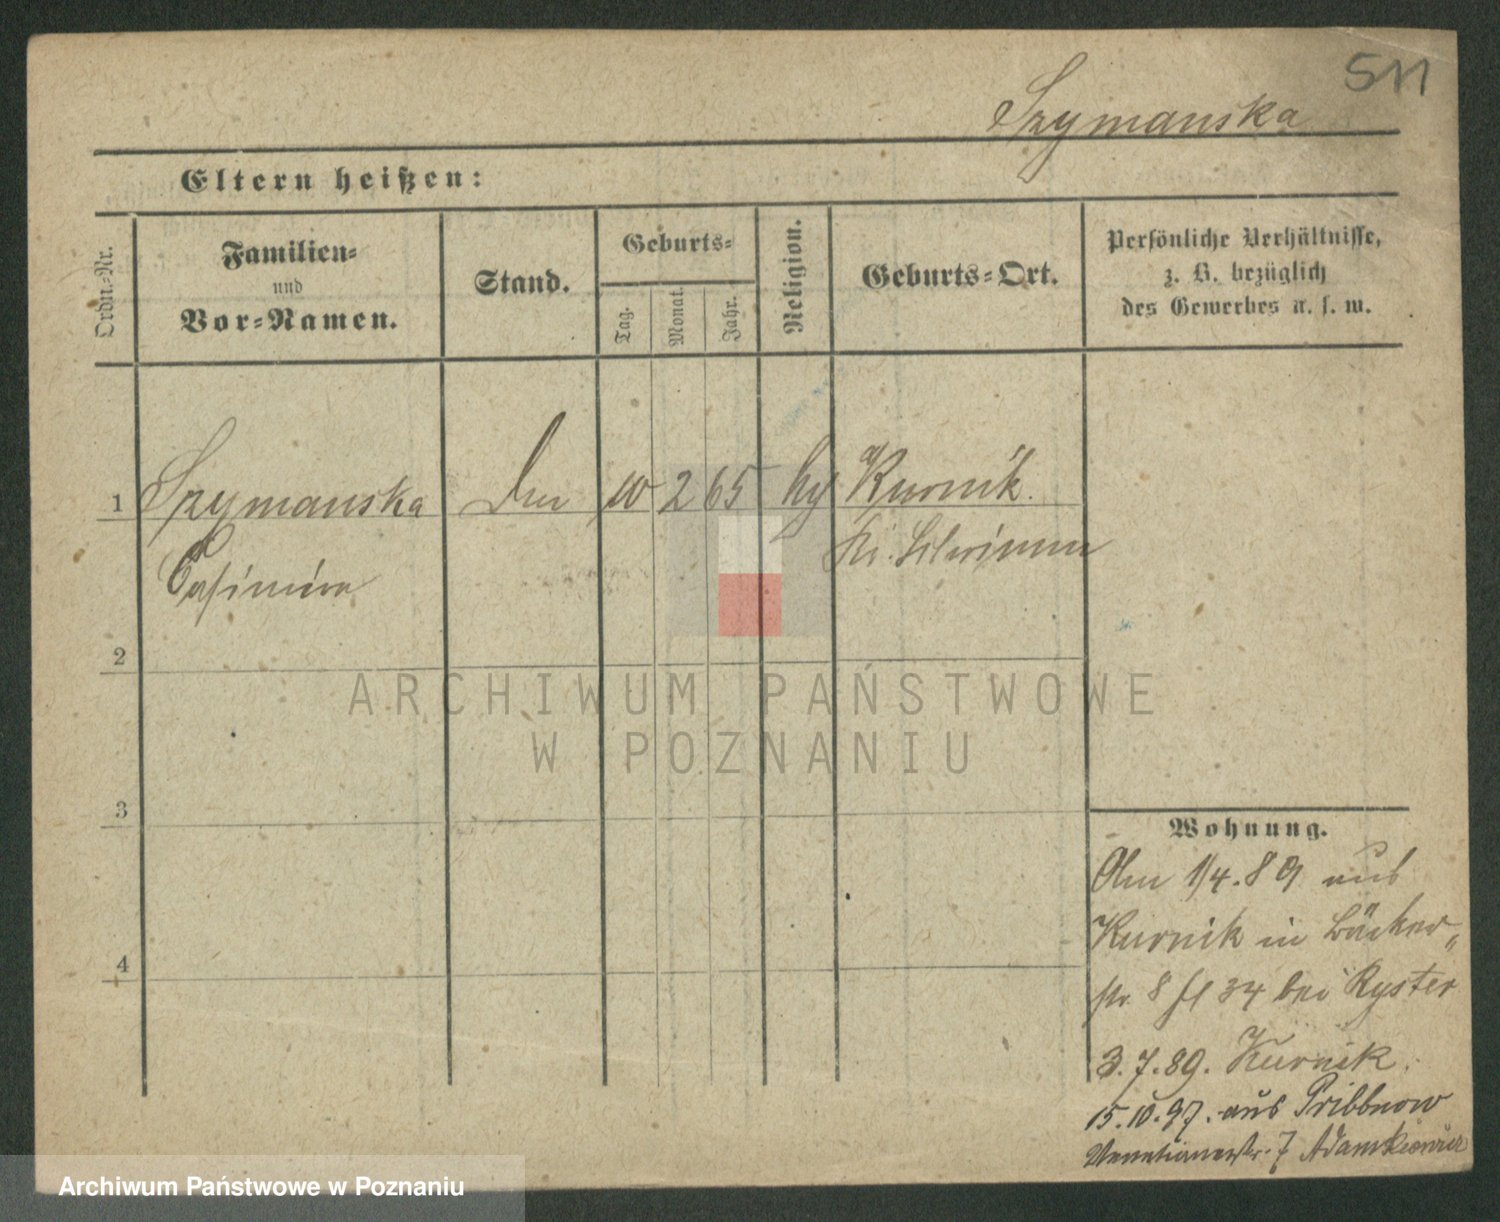 511
Szymanska
Eltern heißen:
Ordn.-Nr.
Familien-
und
Vor-Namen.
Stand.
Geburts-
Tag.
Monat.
Jahr.
Religion.
Geburts-Ort.
Persönliche Verhältnisse,
z. B. bezüglich
des Gewerbes u. s. w.
1
Szymanska
10 2 65
Kurnik.
Casimira
Kr. Schrimm
2
ARCHIWUM PAŃSTWOWE
W POZNANIU
3
Wohnung.
Am 1/4.89 aus
Kurnik in Bäcker„
4
str 8 34 bei Ryster
3.7.89. Kurnik.
15.10.97. aus Pribbnow
Venetianerstr. 7 Adamkiewicz
Archiwum Państwowe w Poznaniu